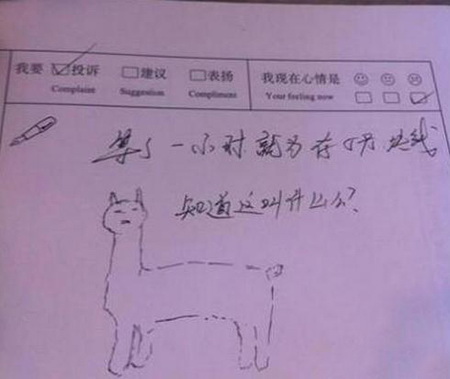 我要 投诉 建议 表扬 我现在心情是
Complaint Suggestion Compliment Your feeling now
等了一小时就为存 万块钱
知道这叫什么?